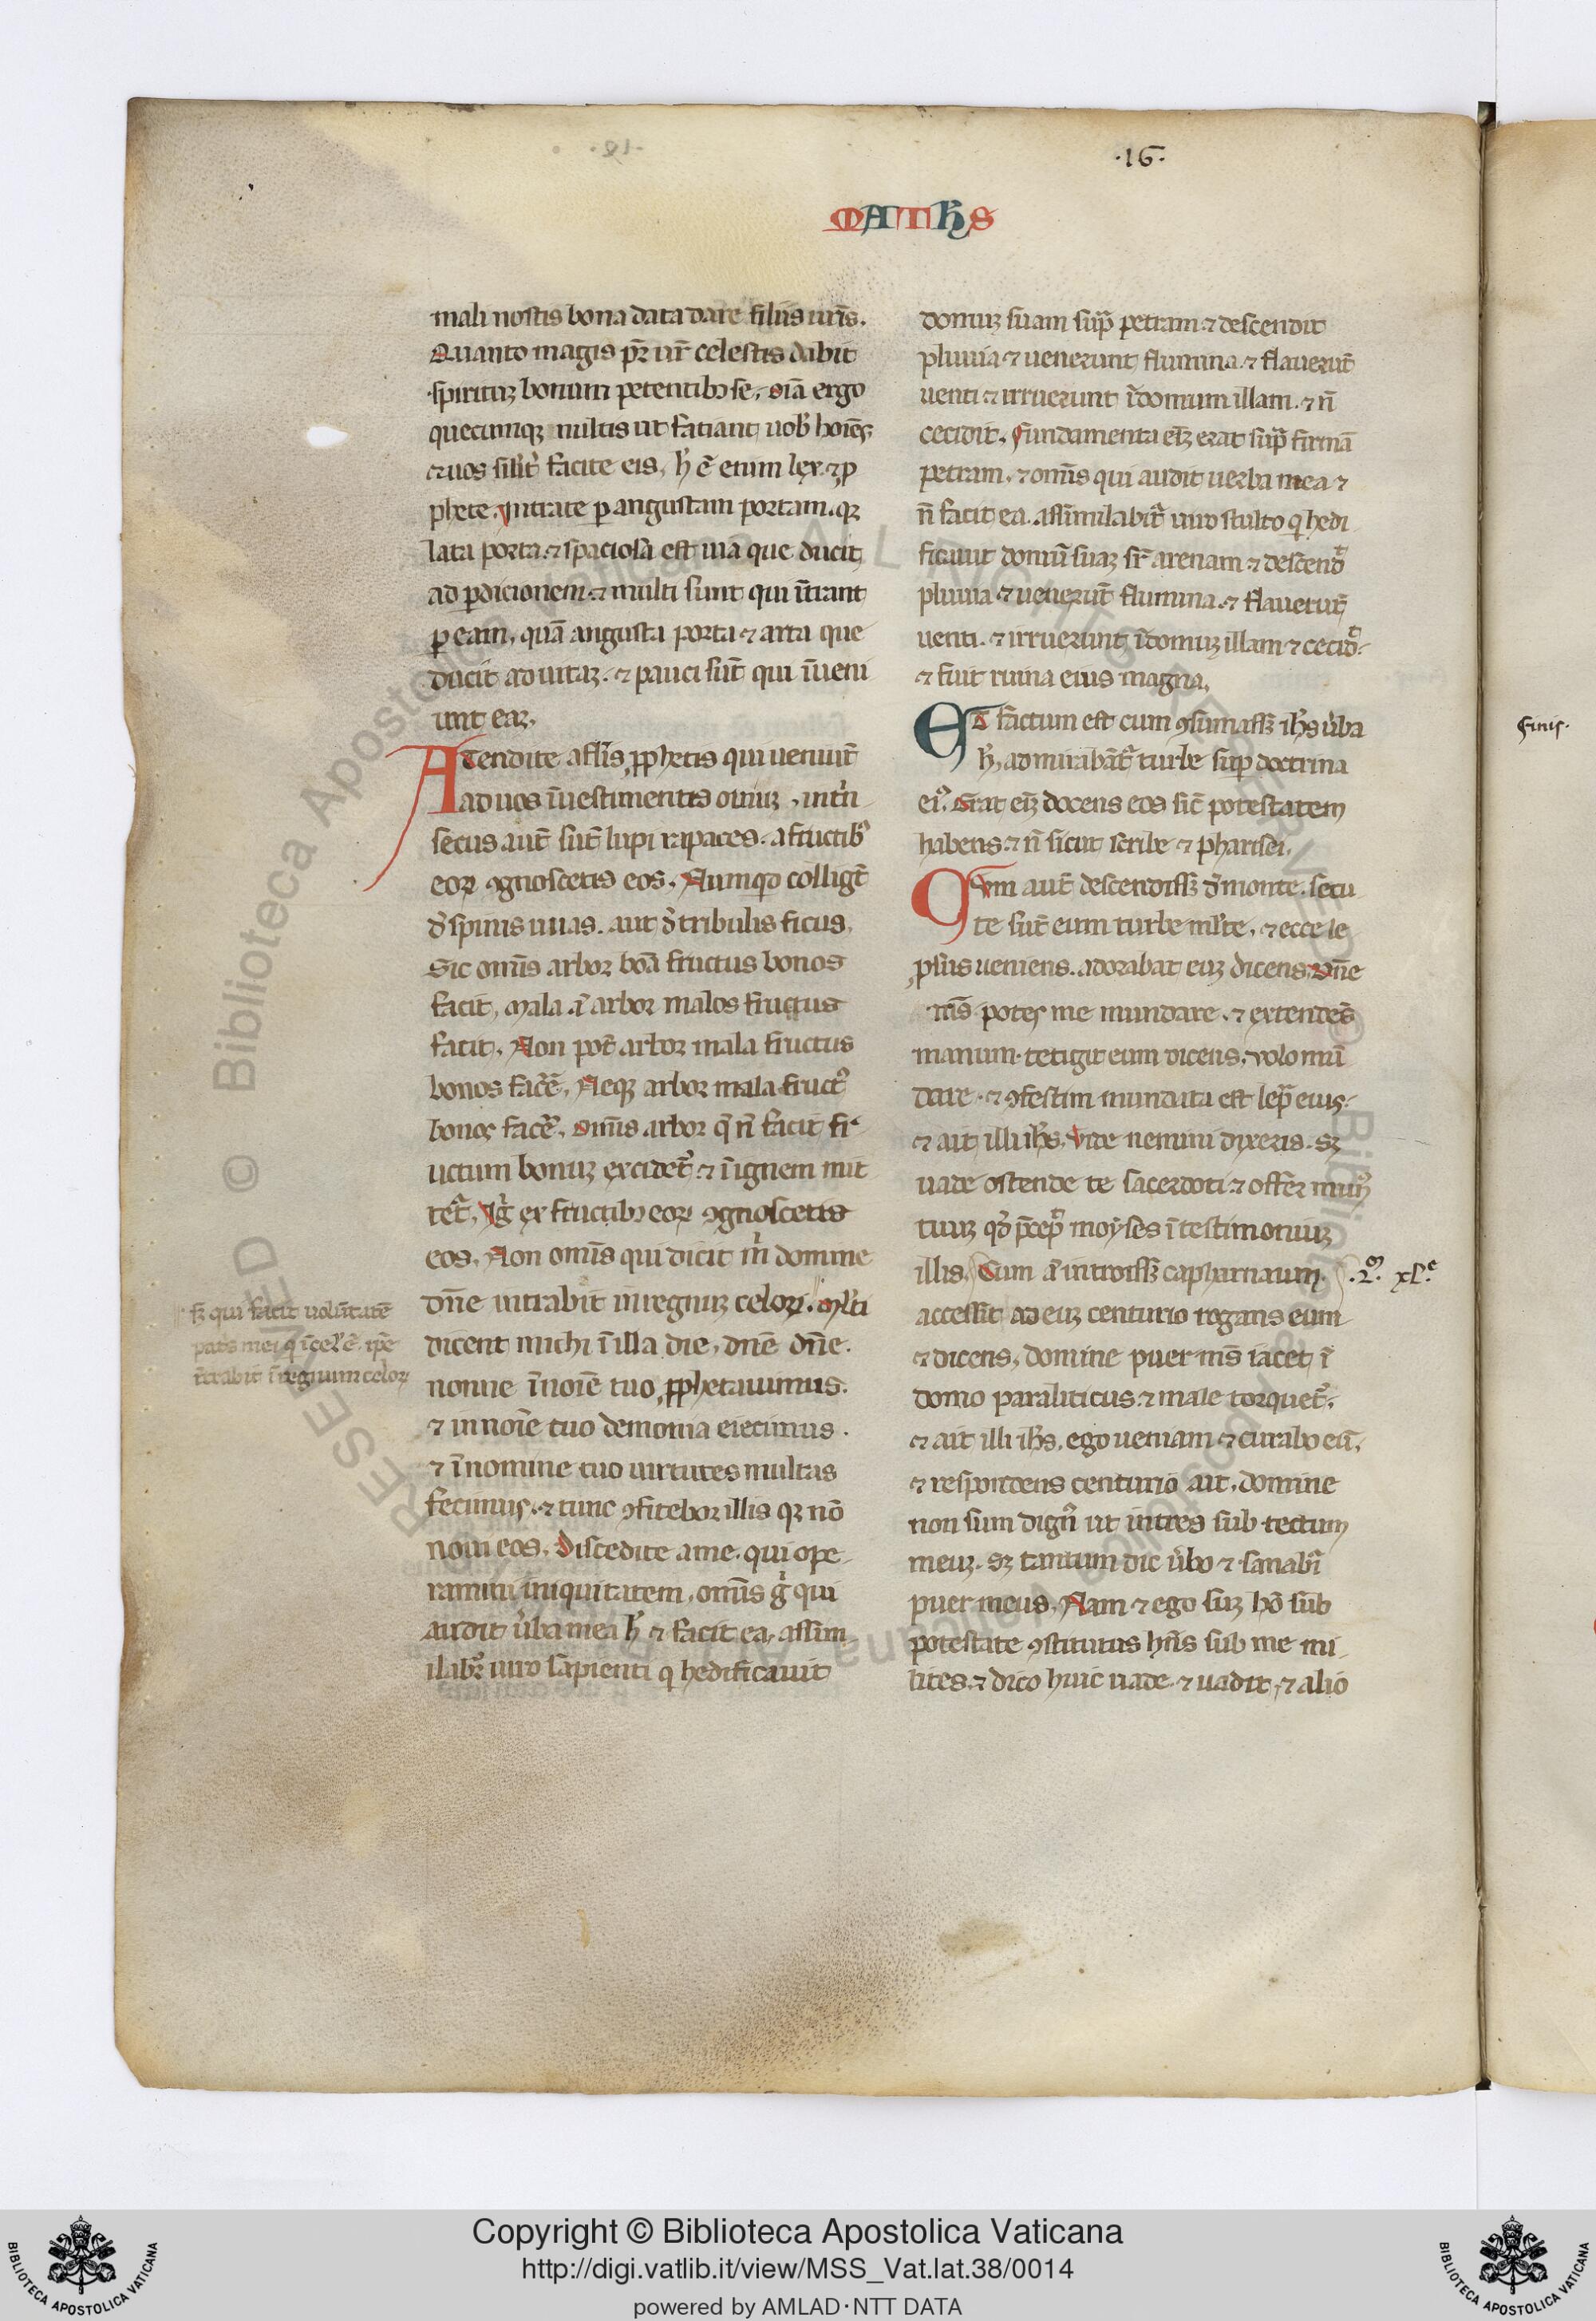 ·16·
MATThS
mali nostis bona data dare filiis uris̄.
Quanto magis pr̄ ur̄ celestis dabit
spirituꝫ bonum petentibꝫ se. Oīa ergo
quecumqꝫ uultis ut fatiant uob̄ hoīes
⁊ uos silit̄ facite eis. h̄ ē enim lex. ⁊ ꝓ
phete. Intrate ꝑ angustam portam. qꝫ
lata porta. ⁊ spaciosa est uia que ducit
ad ꝑdicionem. ⁊ multi sunt qui īt̄rant
ꝑ eam. quā angusta porta ⁊ arta que
ducit ad uitaꝫ. ⁊ pauci sūt qui īueni
unt eaꝫ.
ATendite a fl̄is ꝓphetis qui ueniūt
ad uos īuestimentis ouiuꝫ. int̄n
secus aut̄ sūt lupi rapaces. a fructibꝰ
eoꝝ ꝯgnoscetis eos. Numqd colligūt
d̄ spinis uuas. aut d̄ tribulis ficus.
Sic omīs arbor bōa fructus bonos
facit. Mala ā arbor malos fructus
facit. Non pot̄ arbor mala fructus
bonos facē. Neqꝫ arbor mala fructꝰ
bonos facē. Omīs arbor q̄ n̄ facit fr
uctum bonuꝫ excidet̄. ⁊ ī ignem mit
tet̄. Igr̄ ex fructibꝫ eoꝝ ꝯgnoscetis
eos. Non omīs qui dicit m̄ domine
dn̄e intrabit in regnuꝫ celoꝝ. Ml̄ti
dicent michi ī illa die. dn̄e dn̄e.
nonne ī noīe tuo ꝓphetauimus.
⁊ in noīe tuo demonia eiecimus.
⁊ ī nomine tuo uirtutes multas
fecimus. ⁊ tunc ꝯfitebor illis qꝫ nō
noui eos. Discedite a me. qui ope
ramini iniquitatem. omīs ḡ qui
audit ūba mea h̄ ⁊ facit ea. assim
ilabr̄ uiro sapienti q hedificauit
sꝫ qui facit uolūtatē
pat̄s mei q ī cel̄ ē. ipē
īt̄rabit ī regnum celoꝝ
domuꝫ suam sup̄ petram. ⁊ descendit
pluuia ⁊ uenerunt flumina. ⁊ flauerūt
uenti ⁊ irruerunt ī domum illam. ⁊ n̄
cecidit. Fundamenta eīꝫ erat sup̄ firmā
petram. ⁊ omīs qui audit uerba mea ⁊
n̄ facit ea. assimilabit̄ uiro stulto q hedi
ficauit domū suaꝫ sr̄ arenam ⁊ descend̄
pluuia ⁊ uenerūt flumina. ⁊ flauerūt
uenti. ⁊ irruerunt ī domuꝫ illam ⁊ cecid̄
⁊ fuit ruina eius magna.
ET factum est cum ꝯsūmassꝫ ih̄s ūba
h̄. admirabāt̄ turbe sup doctrina
eiꝰ. Erat eīꝫ docens eos sic̄ potestatem
habens. ⁊ n̄ sicut scribe ⁊ pharisei.
Cum aut̄ descendissꝫ d̄ monte. secu
te sūt eum turbe ml̄te. ⁊ ecce le
ꝓsus ueniens. adorabat euꝫ dicens. Dn̄e
uis potes me mundare. ⁊ extendēs
manum. tetigit eum dicens. volo mū
dare. ⁊ ꝯfestim mundata est lep̄ eius.
⁊ ait illi ih̄s. Vide nemini dixeris. sꝫ
uade ostende te sacerdoti. ⁊ offer munꝰ
tuuꝫ qd̄ p̄cep̄ moyses ī testimoniuꝫ
illis. Cum ā introissꝫ capharnaum.
.2. xl.
accessit ad euꝫ centurio rogans eum
⁊ dicens. domine puer ms̄ iacet ī
domo paraliticus. ⁊ male torquet̄.
⁊ ait illi ih̄s. ego ueniam ⁊ curabo eū.
⁊ respondens centurio ait. domine
non sum dignꝰ ut intres sub tectum
meuꝫ. sꝫ tantum dic ūbo ⁊ sanabr̄
puer meus. Nam ⁊ ego suꝫ hō sub
potestate ꝯstitutus hn̄s sub me mi
lites. ⁊ dico huic uade. ⁊ uadit. ⁊ alio
finis.
© Biblioteca Apostolica Vaticana ALL RIGHTS RESERVED
Copyright © Biblioteca Apostolica Vaticana
http://digi.vatlib.it/view/MSS_Vat.lat.38/0014
powered by AMLAD·NTT DATA
BIBLIOTECA APOSTOLICA VATICANA
BIBLIOTECA APOSTOLICA VATICANA